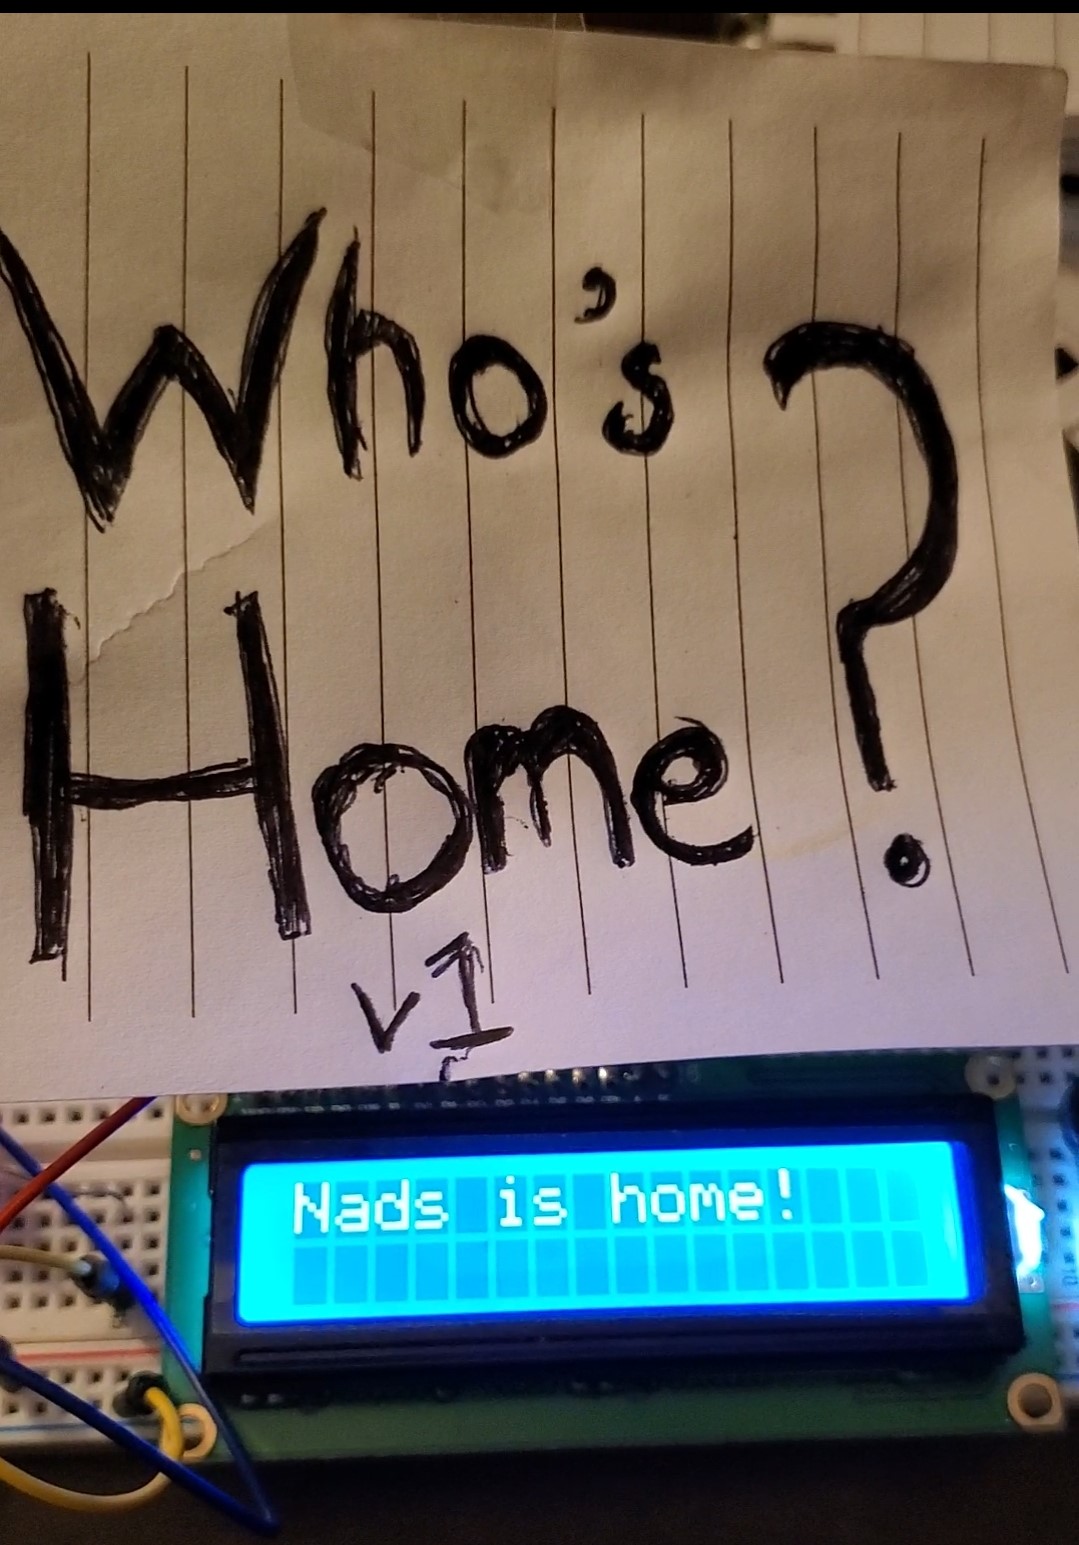 Who's
Home?
v1
Nads is home!